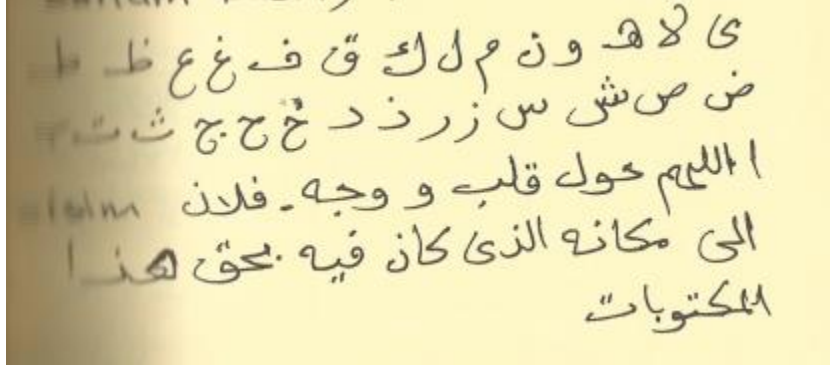 ى لا ه و ن م ل ك ق ف غ ع ظ ط
ض ص ش س ز ر ذ د خ ح ج ث ت
ا اللهم حول قلب و وجه . فلان
الى مكانه الذى كان فيه بحق هذا
المكتوبات